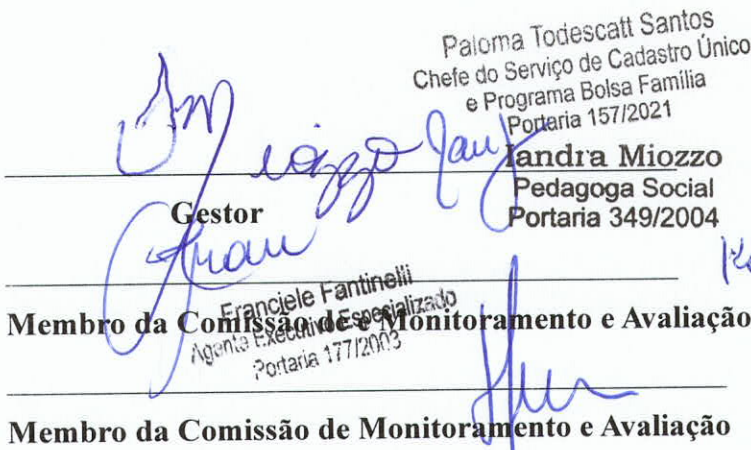 Paloma Todescatt Santos
Chefe do Serviço de Cadastro Único
e Programa Bolsa Família
Portaria 157/2021
Iandra Miozzo
Pedagoga Social
Portaria 349/2004
Gestor
Franciele Fantinelli
Agente Executivo Especializado
Portaria 177/2003
Membro da Comissão de e Monitoramento e Avaliação
Membro da Comissão de Monitoramento e Avaliação